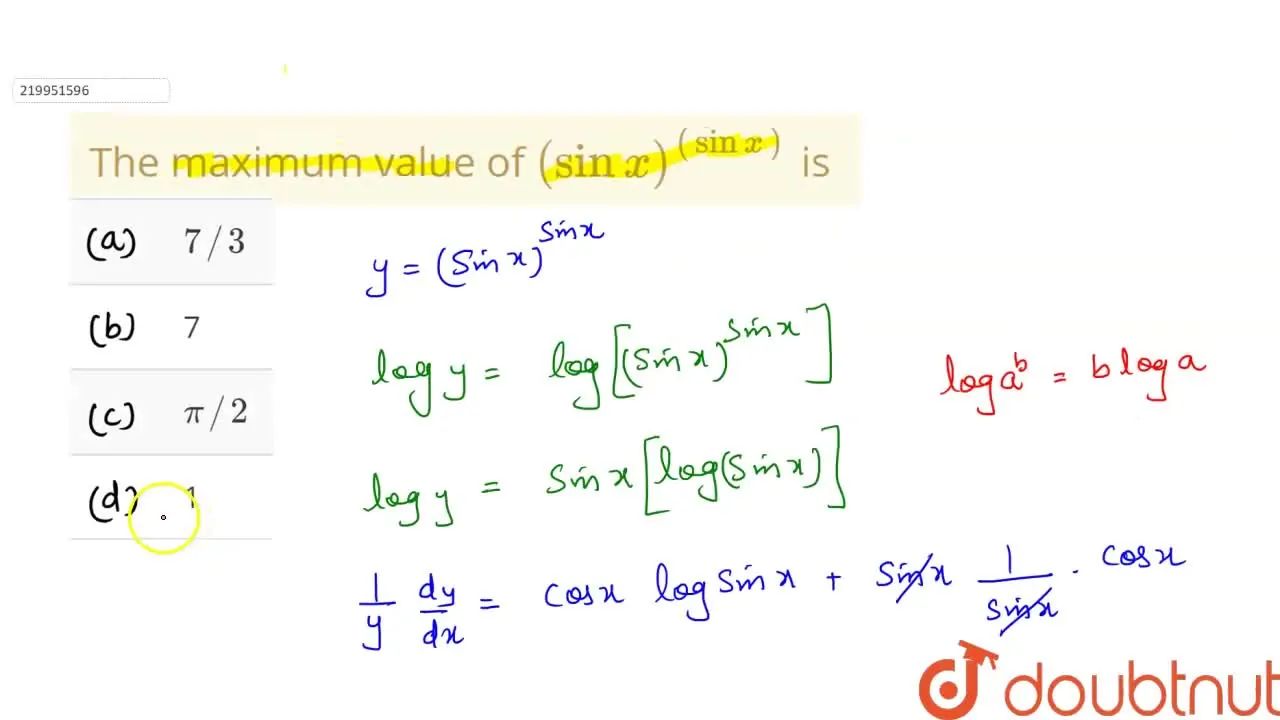 219951596
The maximum value of (sin x)^(sin x) is
(a) 7/3
(b) 7
(c) π/2
(d) 1
y = (Sin x)^Sin x
log y = log[(Sin x)^Sin x]
log a^b = b log a
log y = Sin x [log(Sin x)]
1/y dy/dx = Cos x log Sin x + Sin x 1/Sin x · Cos x
doubtnut